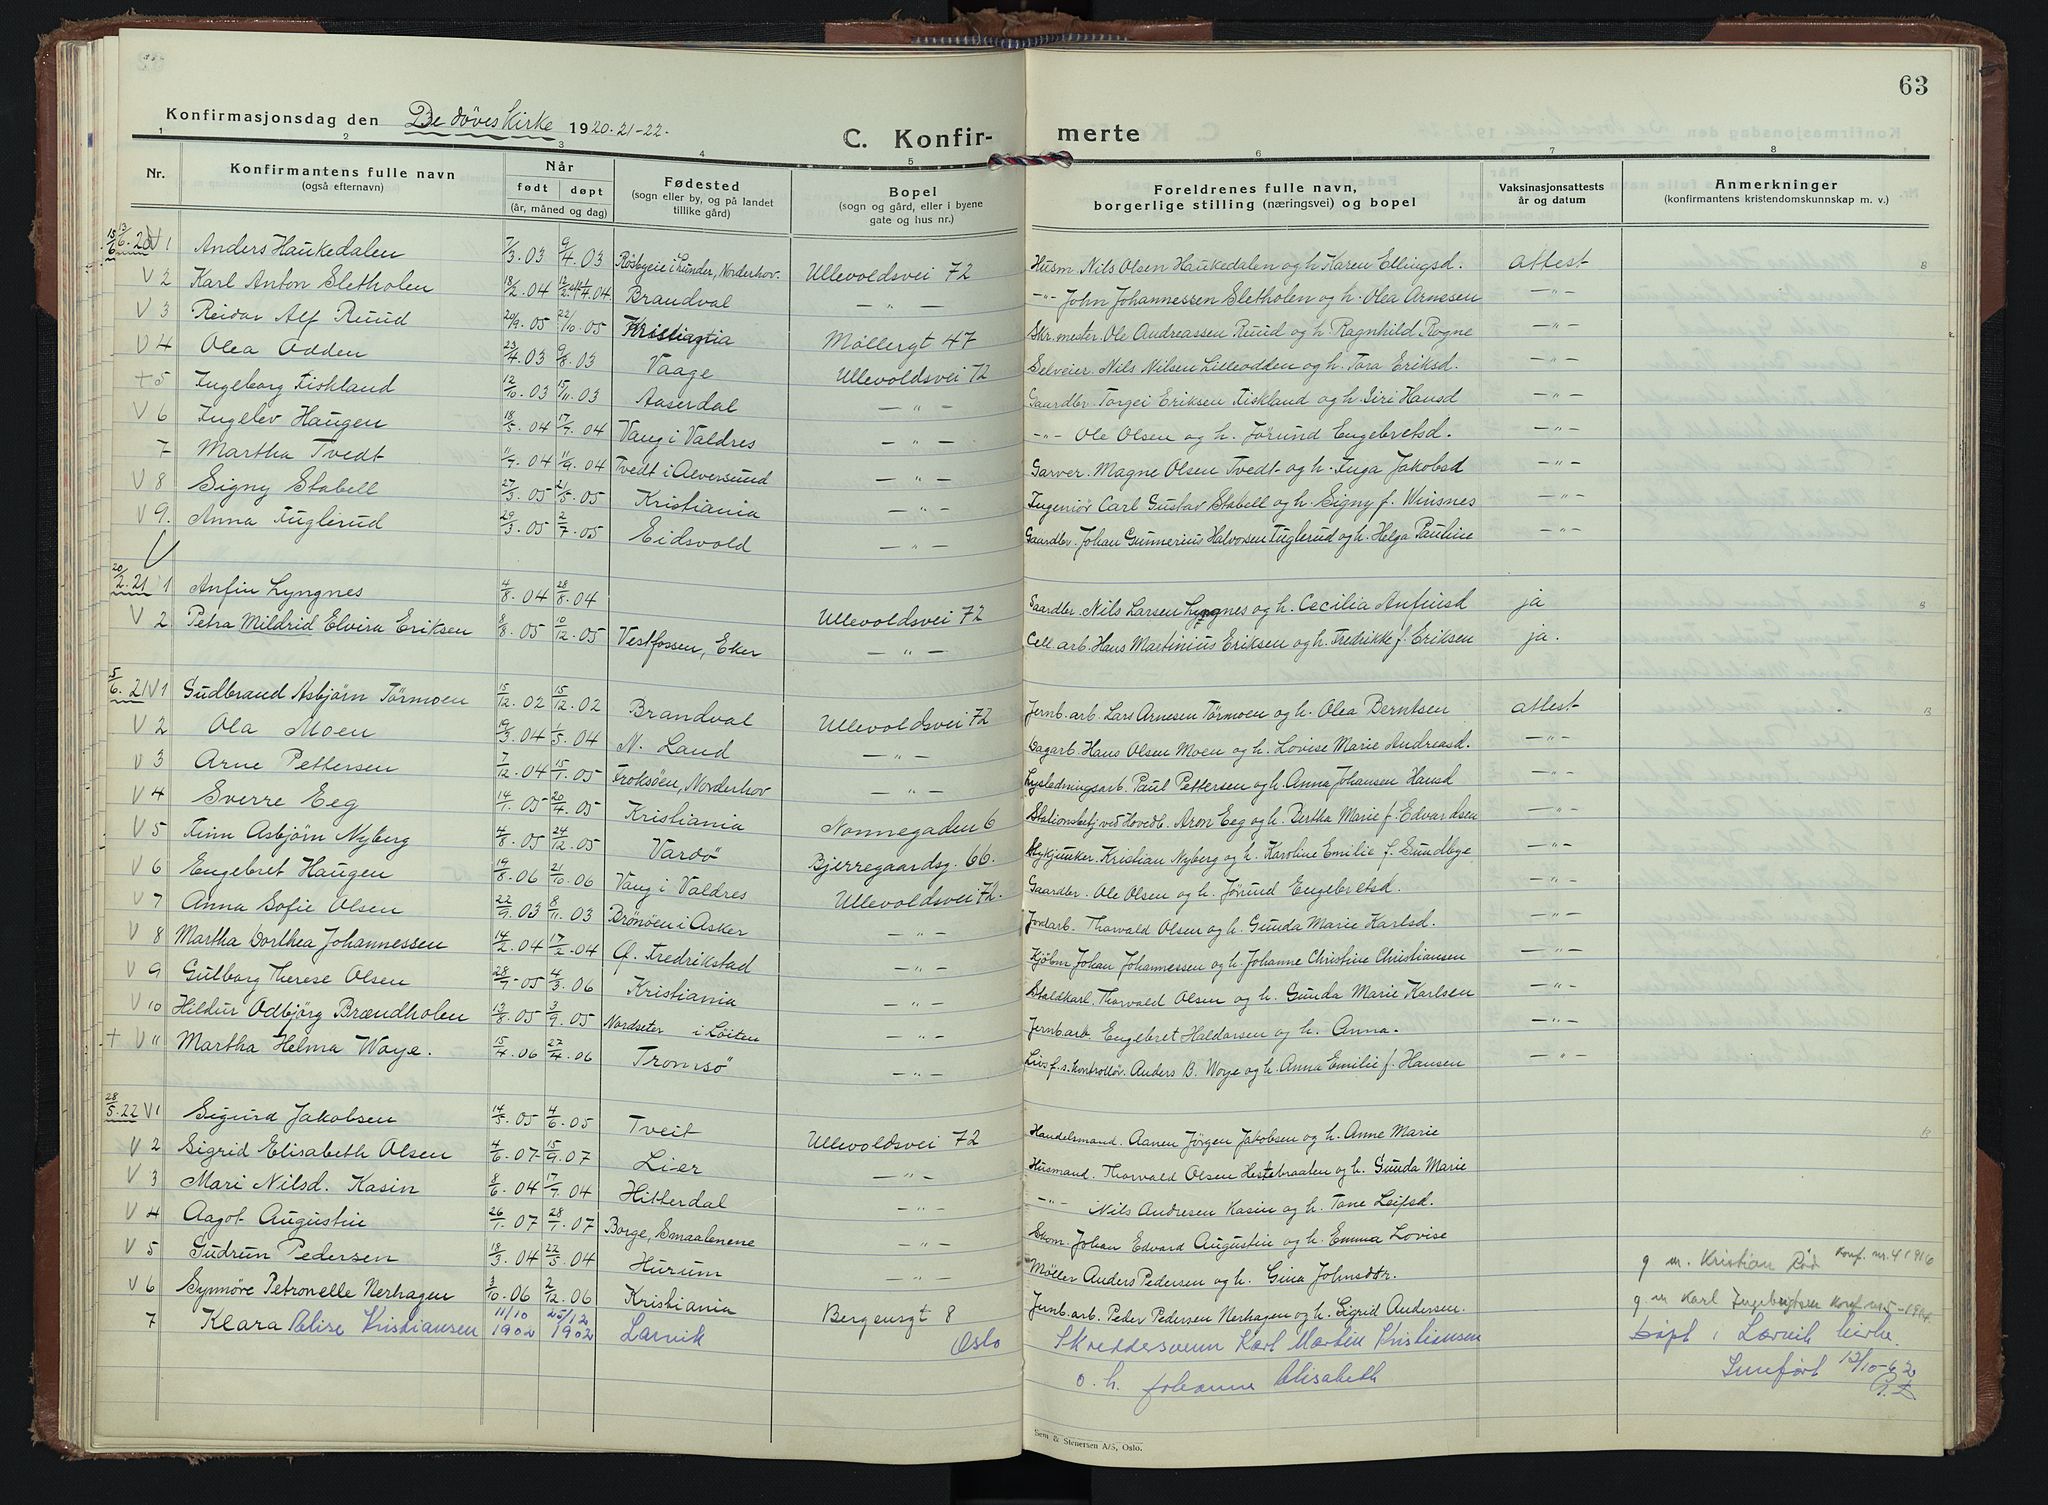 63
Konfirmasjonsdag den De døves Kirke 1920-21-22.
C. Konfir- merte
1 2 3 4 5 6 7 8
Nr. Konfirmantens fulle navn (også efternavn) Når født døpt (år, måned og dag) Fødested (sogn eller by, og på landet tillike gård) Bopel (sogn og gård, eller i byene gate og hus nr.) Foreldrenes fulle navn, borgerlige stilling (næringsvei) og bopel Vaksinasjonsattests år og datum Anmerkninger (konfirmantens kristendomskunnskap m. v.)
V 1 Anders Haukedalen 7/3.03 9/4.03 Rosbyeie i Lunder, Norderhov. Ullevoldsvei 72 Husm. Nils Olsen Haukedalen og h. Karen Ellingsd. attest
V 2 Karl Anton Sletholen 18/2.04 4/4.04 Brandval —"— —"— John Johannessen Sletholen og h. Olea Arnesen —"—
V 3 Reidar Alf Ruud 20/9.05 22/10.05 Kristiania Møllergt 47 Skr.mester. Ole Andreassen Ruud og h. Ragnhild Rogne —"—
V 4 Olea Odden 23/4.03 9/8.03 Vaage Ullevoldsvei 72 Selveier. Nils Nilsen Lilleodden og h. Tora Eriksd. —"—
+ 5 Ingeborg Fiskland 12/10.03 15/11.03 Aaserdal —"— Gaardbr. Torgei Eriksen Fiskland og h. Siri Hansd —"—
V 6 Ingelev Haugen 18/5.04 17/7.04 Vang i Valdres —"— —"— Ole Olsen og h. Jørund Engebretsd. —"—
7 Martha Tvedt 11/7.04 11/9.04 Tvedt i Alversund —"— Garver. Magne Olsen Tvedt og h. Inga Jakobsd —"—
V 8 Signy Stabell 27/3.05 21/5.05 Kristiania —"— Ingeniør Carl Gustav Stabell og h. Signy f. Winsnes —"—
V 9. Anna Fuglerud 29/3.05 2/7.05 Eidsvold —"— Gaardbr. Johan Gunnerius Halvorsen Fuglerud og h. Helga Pauline —"—
20/2.21 1 Anfin Lyngnes 4/8.04 28/8.04 Ullevoldsvei 72 Gaardbr. Nils Larsen Lyngnes og h. Cecilia Antinsd ja
V 2 Petra Mildrid Elvira Eriksen 8/8.05 10/12.05 Vestfossen, Eker —"— Cell.arb. Hans Martinius Eriksen og h. Fredrikke f. Eriksen ja.
5/6.21 V 1 Gudbrand Asbjørn Tørmoen 15/12.02 15/12.02 Brandval Ullevoldsvei 72 Jernb.arb. Lars Arnesen Tørmoen og h. Olea Berntsen attest
V 2 Ola Moen 19/3.04 1/5.04 N. Land —"— Dagarb. Hans Olsen Moen og h. Lovise Marie Andreasd. —"—
V 3 Arne Pettersen 7/12.04 15/1.05 Froksøen, Norderhov —"— Lysledningsarb. Paul Pettersen og h. Anna Johansen Hansd —"—
V 4 Sverre Eeg 14/1.05 20/4.05 Kristiania Nonnegaden 6 Stationsbetj ved Hovedb. Aron Eeg og h. Bertha Marie f. Edvardsen —"—
V 5 Finn Asbjørn Nyberg 4/8.05 24/12.05 Vardø Bjerregaardsg. 66. Kristian Nyberg og h. Karoline Emilie f. Sundbye —"—
V 6 Engebret Haugen 19/8.06 21/10.06 Vang i Valdres Ullevoldsvei 72. Gaardbr. Ole Olsen og h. Jørund Engebretsd. —"—
V 7 Anna Sofie Olsen 22/9.03 8/11.03 Brønøen i Asker —"— Jordarb. Thorvald Olsen og h. Gunda Marie Karlsd. —"—
V 8 Martha Dorthea Johannessen 14/2.04 17/2.04 Gl. Fredrikstad —"— Kjøbm Johan Johannessen og h. Johanne Christine Christiansen —"—
V 9 Gulborg Therese Olsen 28/7.05 4/3.06 Kristiania —"— Staldkarl. Thorvald Olsen og h. Gunda Marie Karlsen —"—
V 10 Hildur Odbjørg Brændholen 13/8.05 3/9.05 Nordseter i Løiten —"— Jernb.arb. Engebret Haldorsen og h. Anna. —"—
+ V 11 Martha Helma Woye. 15/4.06 27/4.06 Tromsø —"— Livsf.s.kontrollør. Anders B. Woye og h. Anna Emilie f. Hansen —"—
28/5.22 V 1 Sigurd Jakobsen 14/5.05 4/6.05 Tveit Ullevoldsvei 72 Handelsmand. Aanen Jørgen Jakobsen og h. Anne Marie
V 2 Sigrid Elisabeth Olsen 4/6.07 15/9.07 Lier —"— Husmand. Thorvald Olsen Hestebraaten og h. Gunda Marie
V 3 Mari Nilsd. Kasin 8/6.04 17/7.04 Hitterdal —"— —"— Nils Andresen Kasin og h. Tone Leifsd.
V 4 Aagot Augustin 26/1.07 28/1.07 Borge, Smaalenene —"— Skom. Johan Edvard Augustin og h. Emma Lovise
V 5 Gudrun Pedersen 18/3.04 22/5.04 Hurum —"— Møller Anders Pedersen og h. Gina Johnsdtr. g m. Kristian Rød Konf. nr. 4 1916
V 6 Synnøve Petronelle Nerhagen 3/10.06 2/12.06 Kristiania —"— Jernb.arb. Peder Pedersen Nerhagen og h. Sigrid Andersen. g. m Karl Ingebrigtsen Konf nr 5-1914.
7 Klara Alise Kristiansen 11/10 1902 25/12 1902 Larvik Bergensgt 8 Oslo Skreddersvenn Karl Morten Kristiansen o. h. Johanne Elisabeth Døpt i Larvik kirke Innført 13/10-62
Sem & Stenersen A/S, Oslo.